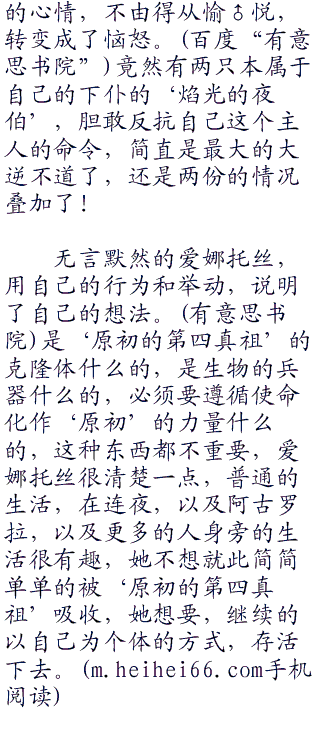 的心情，不由得从愉♂悦，
转变成了恼怒。(百度“有意
思书院”)竟然有两只本属于
自己的下仆的‘焰光的夜
伯’，胆敢反抗自己这个主
人的命令，简直是最大的大
逆不道了，还是两份的情况
叠加了！
无言默然的爱娜托丝，
用自己的行为和举动，说明
了自己的想法。(有意思书
院)是‘原初的第四真祖’的
克隆体什么的，是生物的兵
器什么的，必须要遵循使命
化作‘原初’的力量什么
的，这种东西都不重要，爱
娜托丝很清楚一点，普通的
生活，在连夜，以及阿古罗
拉，以及更多的人身旁的生
活很有趣，她不想就此简简
单单的被‘原初的第四真
祖’吸收，她想要，继续的
以自己为个体的方式，存活
下去。(m.heihei66.com手机
阅读)